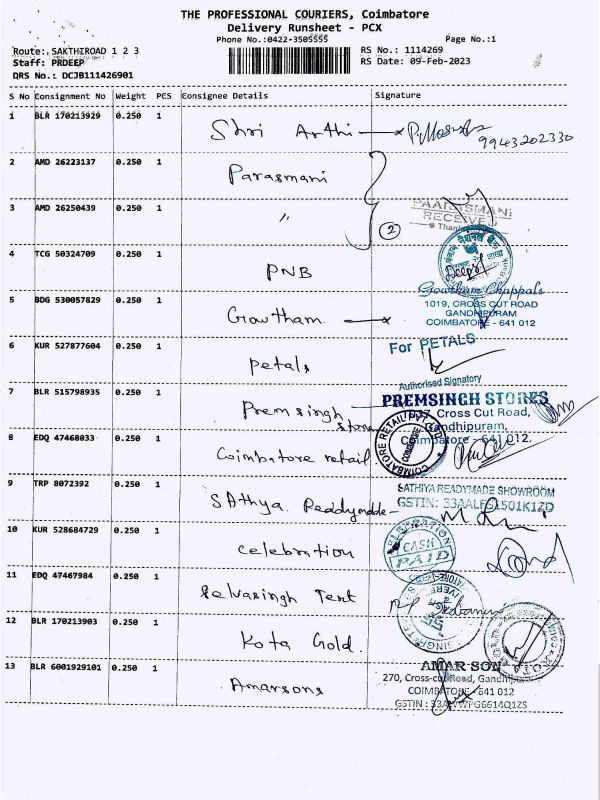 THE PROFESSIONAL COURIERS, Coimbatore
Delivery Runsheet - PCX
Phone No.:0422-3505555 Page No.:1
Route: SAKTHIROAD 1 2 3 RS No.: 1114269
Staff: PRDEEP RS Date: 09-Feb-2023
DRS No.: DCJB111426901
S No Consignment No Weight PCS Consignee Details Signature
1 BLR 170213929 0.250 1 Shri Arthi 9943202330
2 AMD 26223137 0.250 1 Parasmani
3 AMD 26250439 0.250 1 〃 2
PAARASMANI
RECEIVED
4 TCG 50324709 0.250 1 PNB
5 BDG 530057829 0.250 1 Gowtham
Gowtham Chappals
1019, CROSS CUT ROAD
GANDHIPURAM
COIMBATORE - 641 012
6 KUR 527877604 0.250 1 Petals
For PETALS
Authorised Signatory
7 BLR 515798935 0.250 1 Premsingh stores
PREMSINGH STORES
Cross Cut Road,
Gandhipuram,
Coimbatore - 641 012.
8 EDQ 47468033 0.250 1 Coimbatore retail
COIMBATORE RETAIL PVT LTD
9 TRP 8072392 0.250 1 SAthya Readymade
SATHIYA READYMADE SHOWROOM
10 KUR 528684729 0.250 1 celebration
CELEBRATION
CASH
PAID
11 EDQ 47467984 0.250 1 Selvasingh Tent
12 BLR 170213903 0.250 1 Kota Gold.
13 BLR 6001929101 0.250 1 Amarsons
AMAR SON
270, Cross-cut Road, Gandhipuram
COIMBATORE - 641 012